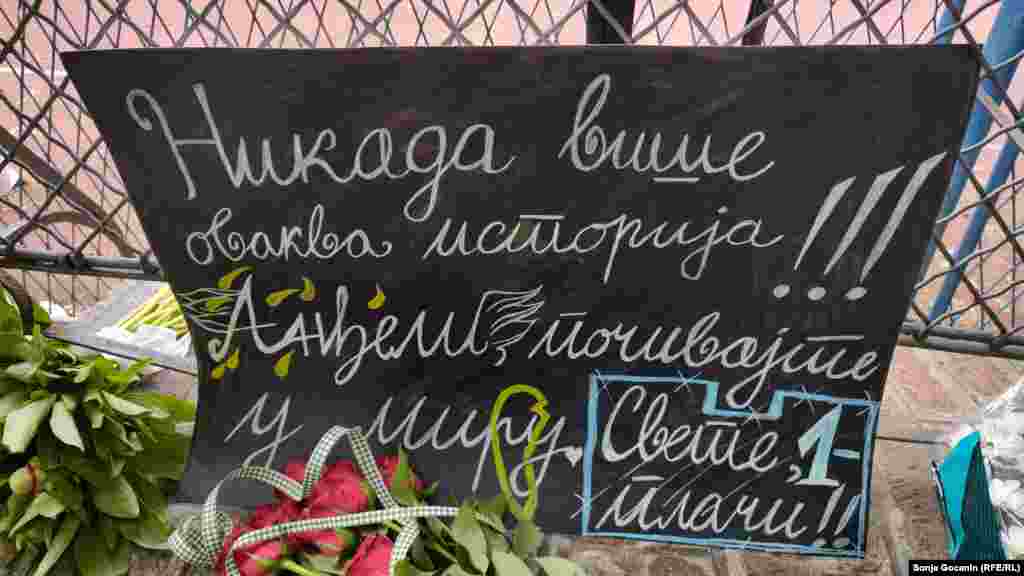 Никада више
оваква историја!!!
Анђели, почивајте
у миру.
Свете, 1-
плачи!!
Sonja Gocanin (RFE/RL)